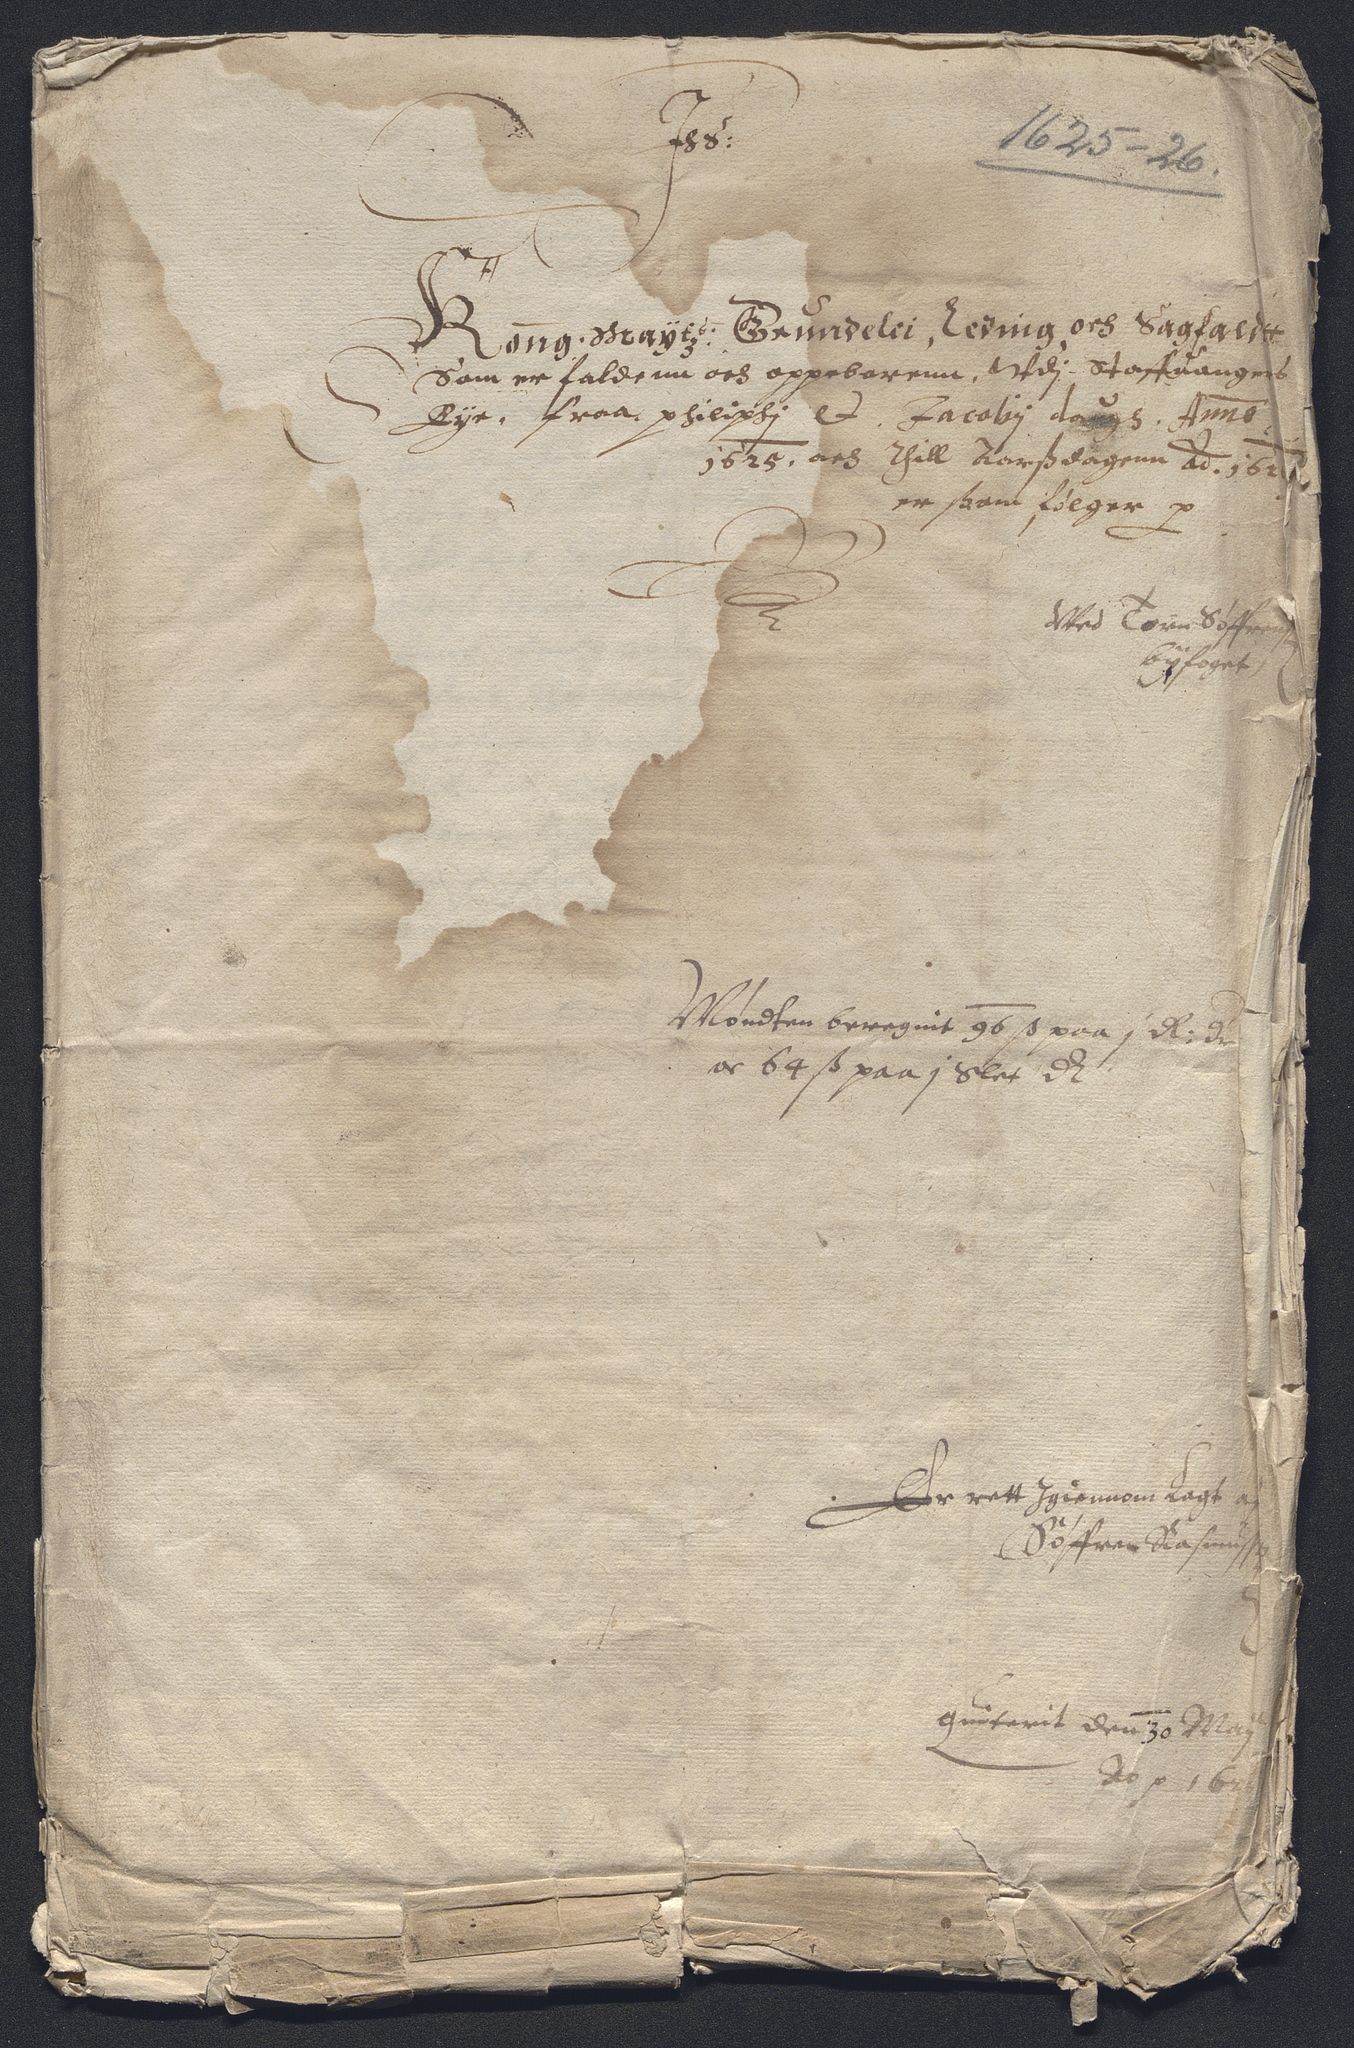 Jhs:
1625-26.
Kong: Maytz: Grundelei, Leding, och Sagfaldt
Som er faldenn och oppeborenn, Vdj Staffuangers
Bye, fraa philiphj & Jacobij daugh, Anno
1625, och Thill Korßdagenn Ad. 162
er ßom følger p
Ved Søffren
byfoget
Møndten beregnit 96 ß paa j dl:
oc 64 ß paa j Slet dl
Er rett Igiennom Lagt
Søffren Rasmuss
quiterit den 30 May
Ao p 162